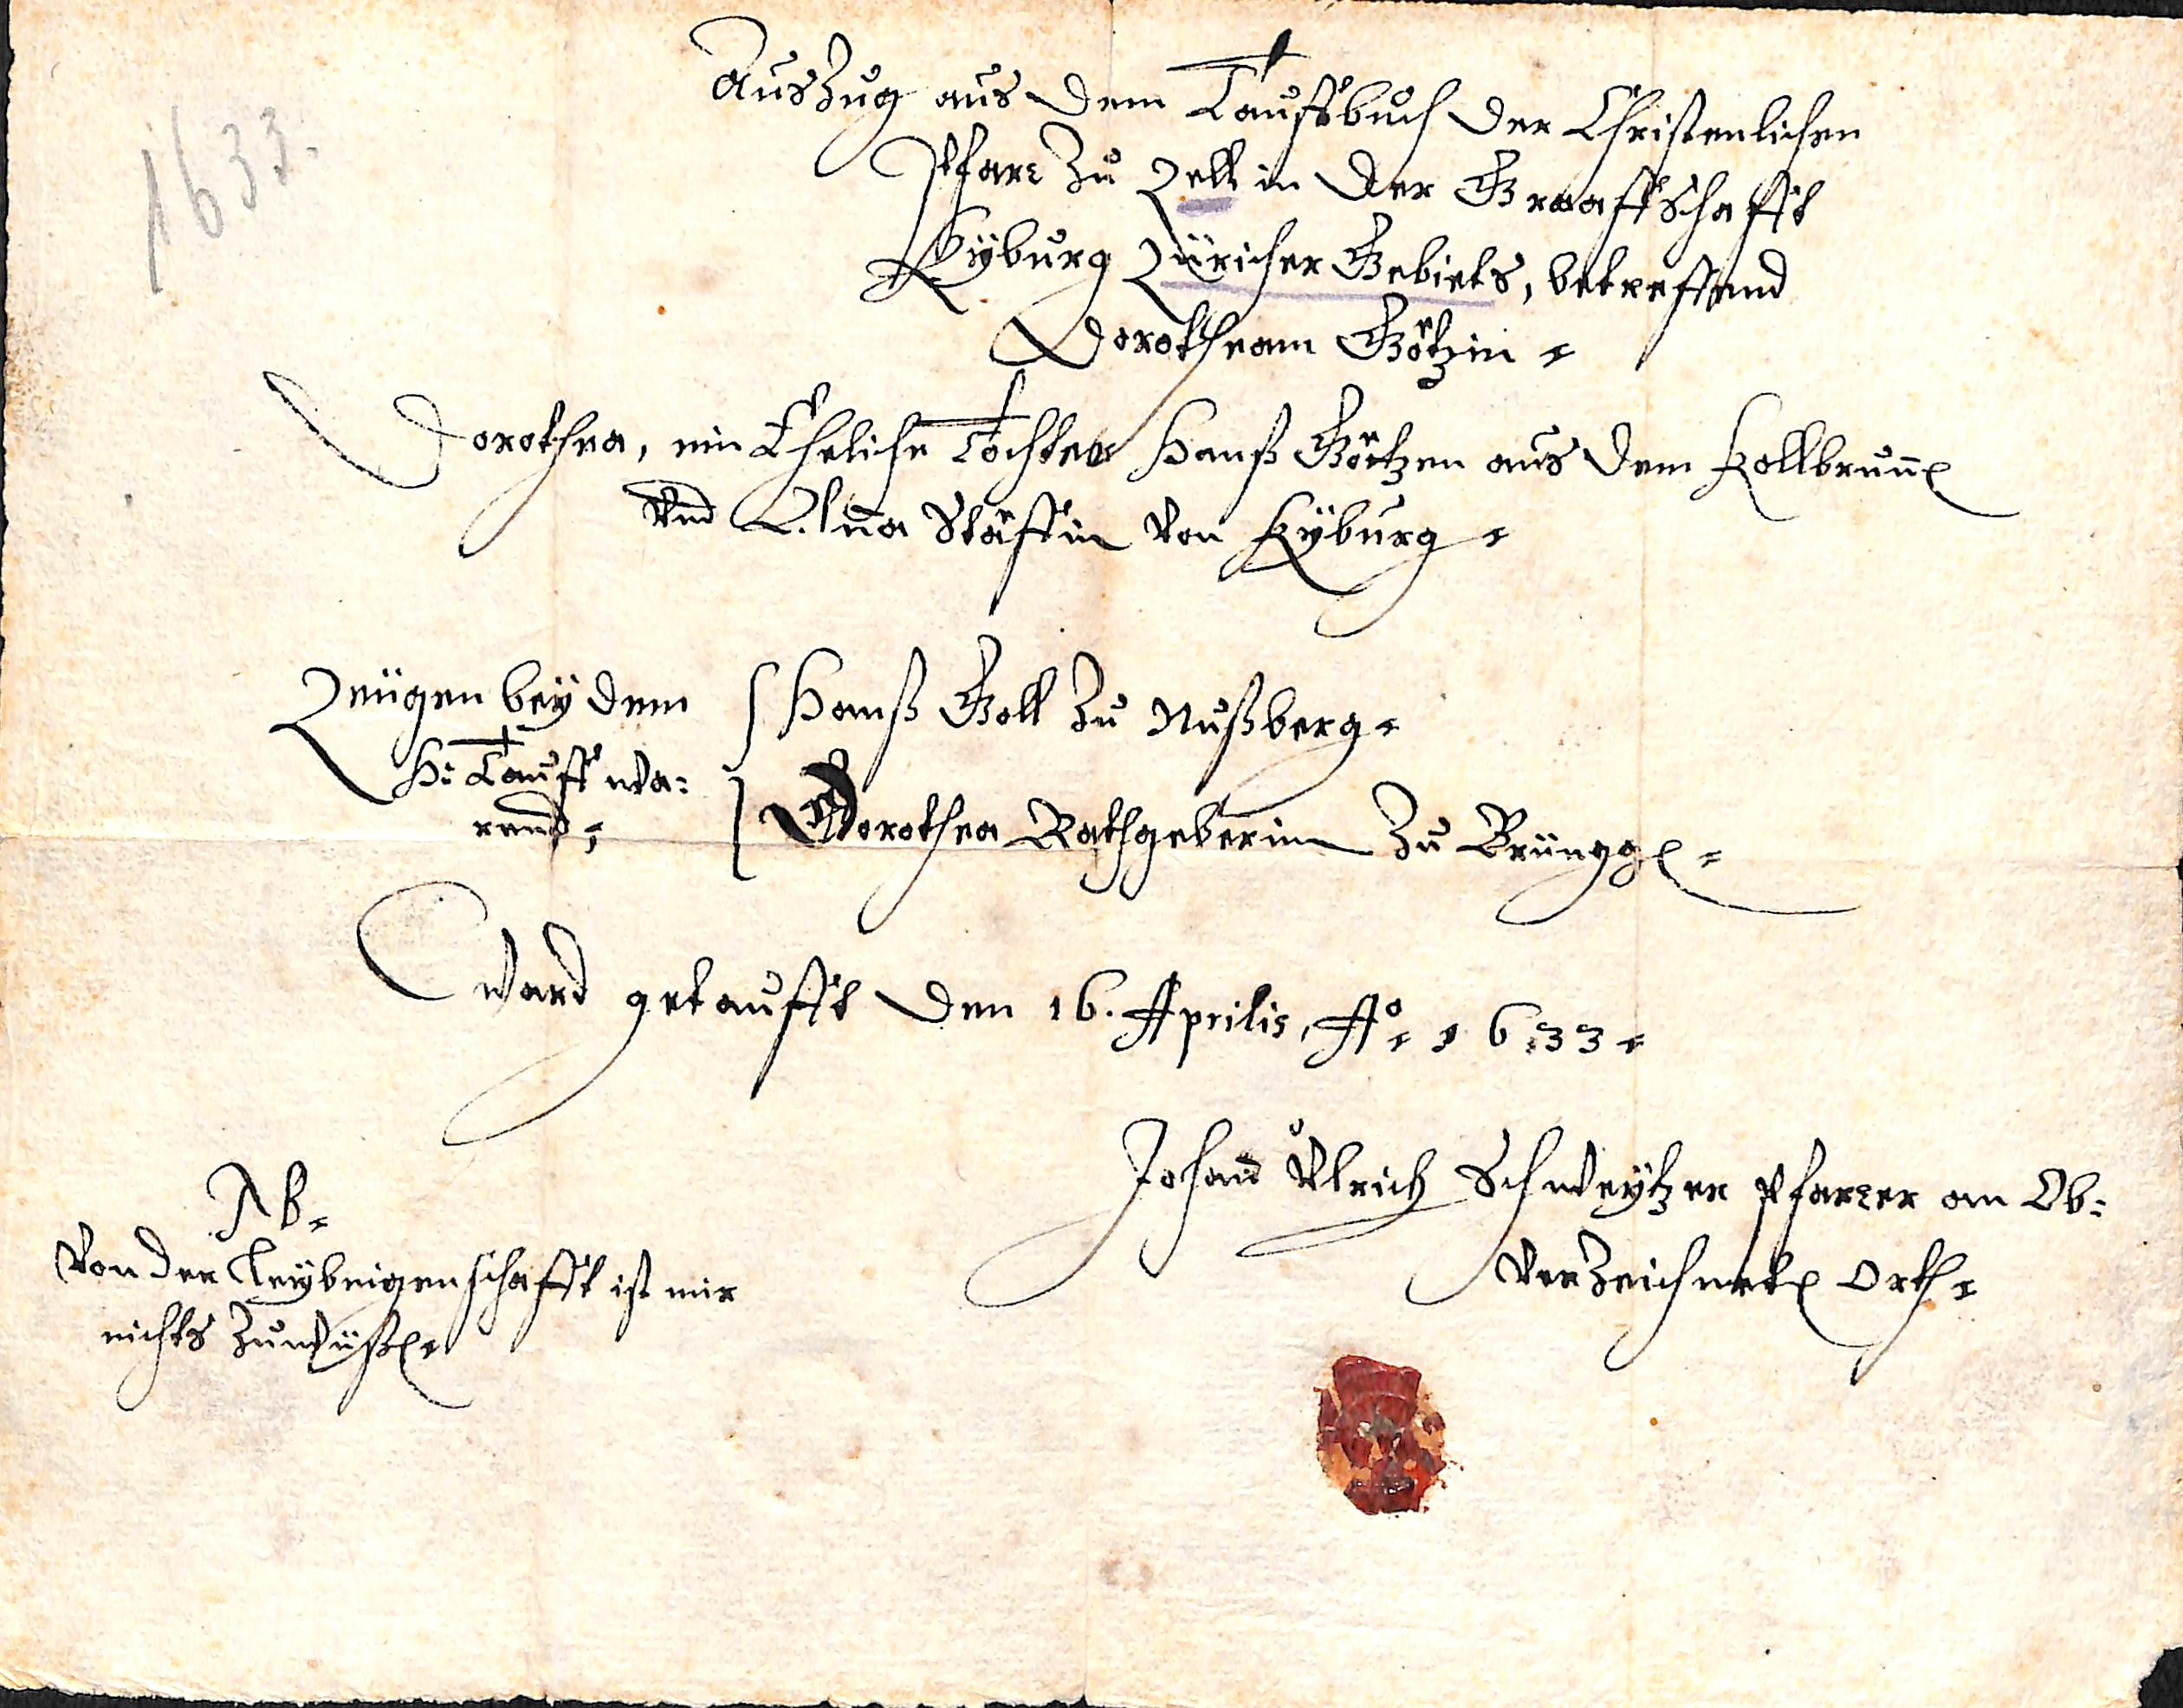 1633.
Auszug aus dem Tauffbuch der Christenlichen
Pfarr zu Zell in der Graaffschafft
Kyburg Züricher Gebiets, betreffend
Dorotheam Götzin
Dorothea, ein Eheliche Tochter Hanß Götzen aus dem Kollbrunnen
Und Anna Stäffin von Kyburg
Zeügen bey dem
H: Tauff wa:
rend,
Hanß Goll zu Nußberg
Dorothea Rathgeberin zu Brünggen
Ward getaufft den 16. Aprilis, Aº 1633
Johann Ulrich Schweytzer Pfarrer am Ob:
Verzeichneten Orth
Von der Leybeigenschafft ist mir
nichts zuwüßen